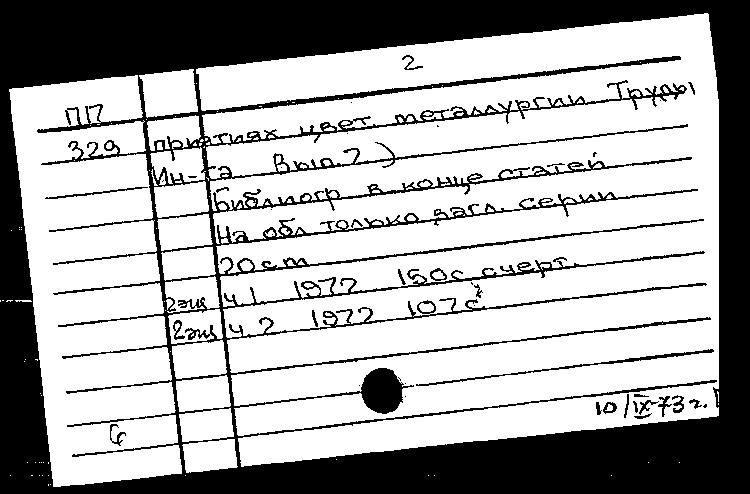 2
ПП
329 приятиях цвет. металлургии Труды
Ин-та Вып.7)
Библиогр в конце статей
На обл только загл. серии
20 см
2экз ч.1 1972 150с с черт.
2экз ч.2 1972 107с
10/IX-73г.